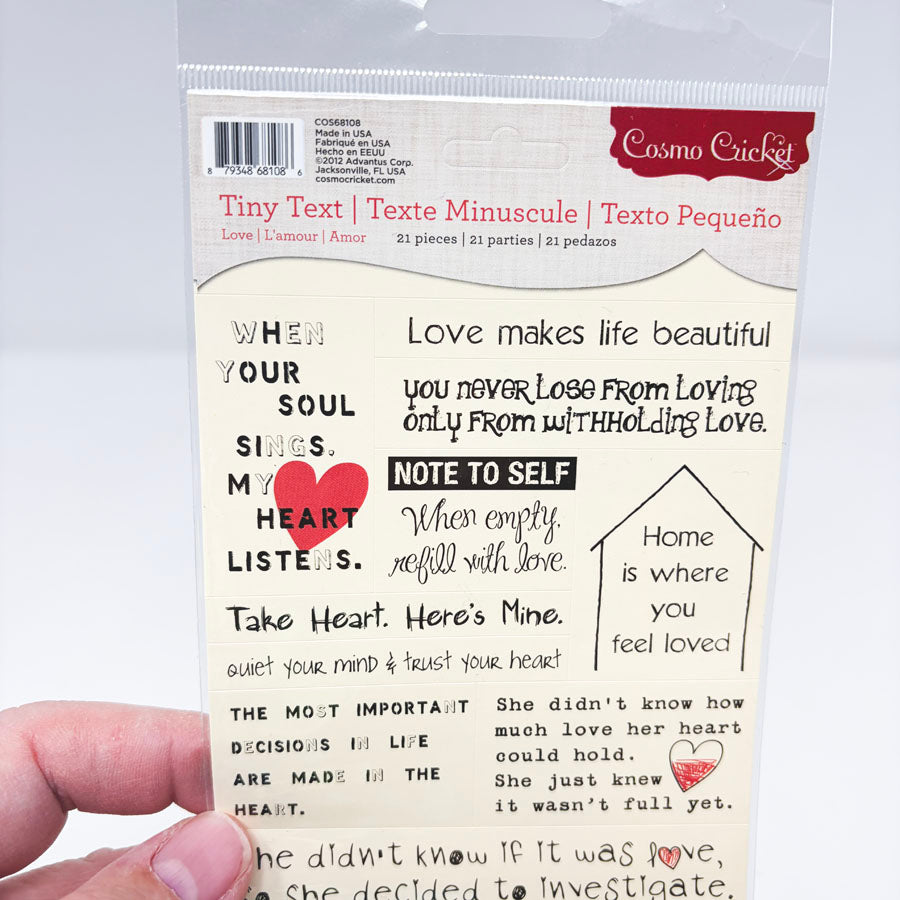 COS68108
Made in USA
Fabriqué en USA
Hecho en EEUU
©2012 Advantus Corp.
Jacksonville, FL USA
cosmocricket.com
8 79348 68108 6
Cosmo Cricket
Tiny Text | Texte Minuscule | Texto Pequeño
Love | L'amour | Amor 21 pieces | 21 parties | 21 pedazos
WHEN
YOUR
SOUL
SINGS,
MY
HEART
LISTENS.
Love makes life beautiful
you never Lose from Loving
only from withholding Love.
NOTE TO SELF
When empty,
refill with love.
Home
is where
you
feel loved
Take Heart. Here's Mine.
quiet your mind & trust your heart
THE MOST IMPORTANT
DECISIONS IN LIFE
ARE MADE IN THE
HEART.
She didn't know how
much love her heart
could hold.
She just knew
it wasn't full yet.
he didn't know if it was love,
she decided to investigate.